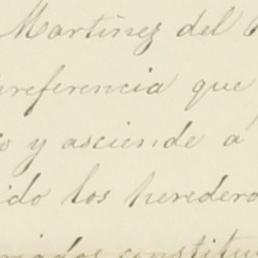 Martinez del
referencia que
y asciende á
ido los heredero
constitu